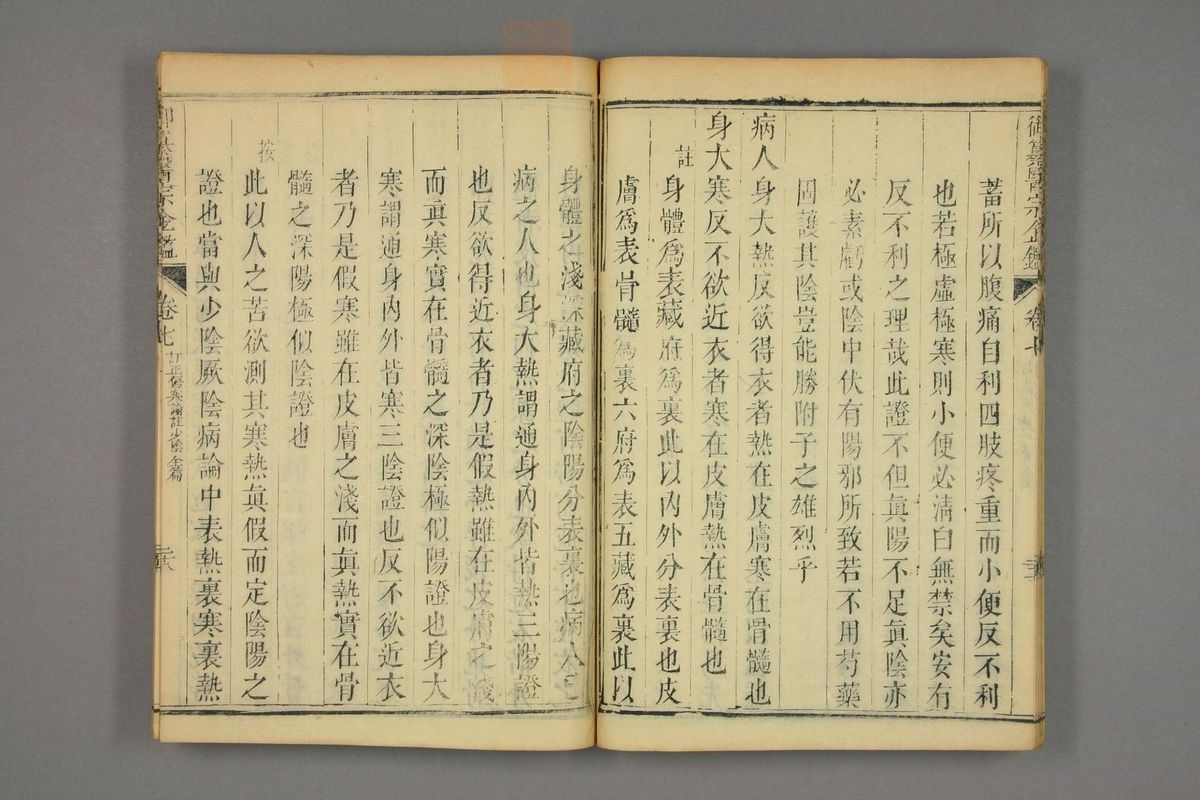 御纂醫宗金鑑
卷七
蓄所以腹痛自利四肢疼重而小便反不利
也若極虛極寒則小便必清白無禁矣安有
反不利之理哉此證不但眞陽不足眞陰亦
必素虧或陰中伏有陽邪所致若不用芍藥
固護其陰豈能勝附子之雄烈乎
病人身大熱反欲得衣者熱在皮膚寒在骨髓也
身大寒反不欲近衣者寒在皮膚熱在骨髓也
註
身體爲表藏府爲裏此以內外分表裏也皮
膚爲表骨髓爲裏六府爲表五藏爲裏此以
身體之淺深藏府之陰陽分表裏也病人
病之人也身大熱謂通身內外皆熱三陽證
也反欲得近衣者乃是假熱雖在皮膚之淺
而眞寒實在骨髓之深陰極似陽證也身大
寒謂通身內外皆寒三陰證也反不欲近衣
者乃是假寒雖在皮膚之淺而眞熱實在骨
髓之深陽極似陰證也
按
此以人之苦欲測其寒熱眞假而定陰陽之
證也當與少陰厥陰病論中表熱裏寒裏熱
御纂醫宗金鑑
卷七
訂正傷寒論註少陰全篇